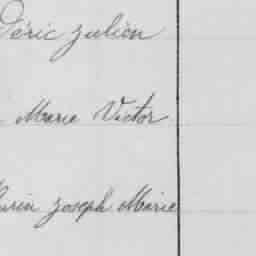 Déric Julien
Marie Victor
Joseph Marie